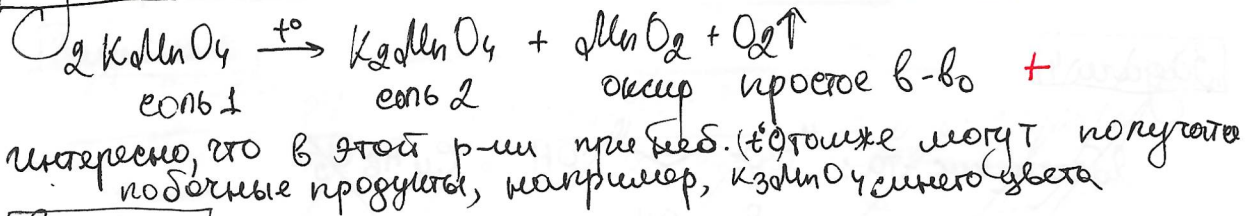 2KMnO4 t° → K2MnO4 + MnO2 + O2↑
соль 1 соль 2 оксид простое в-во +
интересно, что в этой р-ии при (t°) тоже могут получаться
побочные продукты, например, K3MnO4 синего цвета